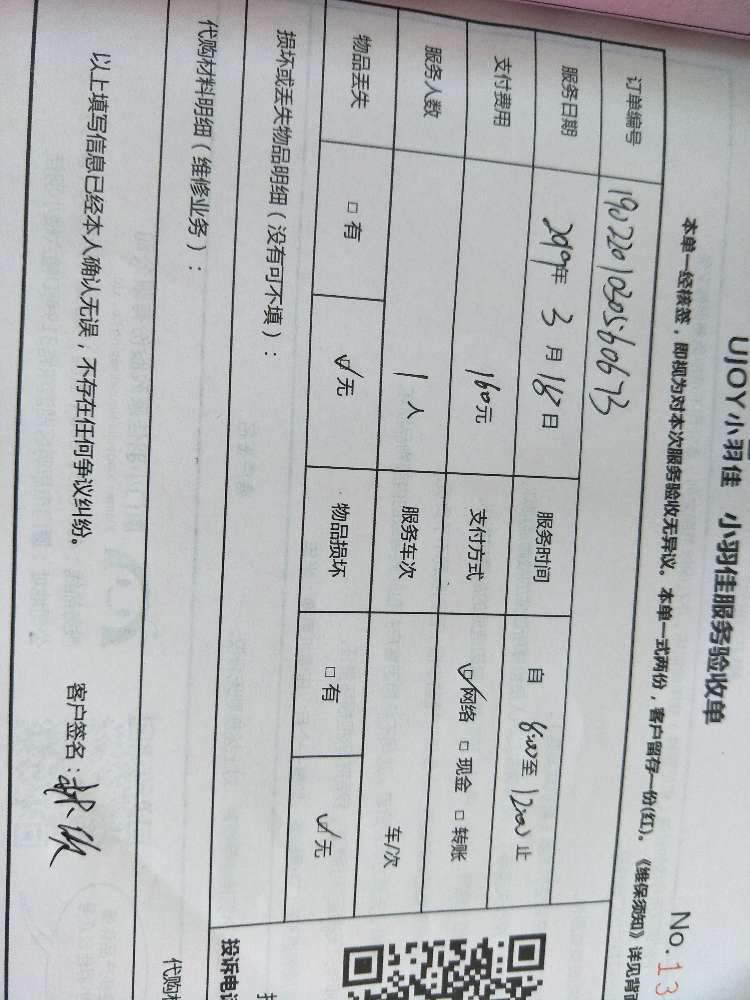 UJOY小羽佳 小羽佳服务验收单
No.13
本单一经核签，即视为对本次服务验收无异议。本单一式两份，客户留存一份(红)。《维保须知》详见背
订单编号 1902201030560673
服务日期 2019年 3 月 18 日 服务时间 自 8:00 至 12:00 止
支付费用 160元 支付方式 ☑网络 □现金 □转账
服务人数 1 人 服务车次 车/次
物品丢失 □有 ☑无 物品损坏 □有 ☑无
损坏或丢失物品明细（没有可不填）：
投诉电
代购材料明细（维修业务）：
代购
以上填写信息已经本人确认无误，不存在任何争议纠纷。 客户签名：